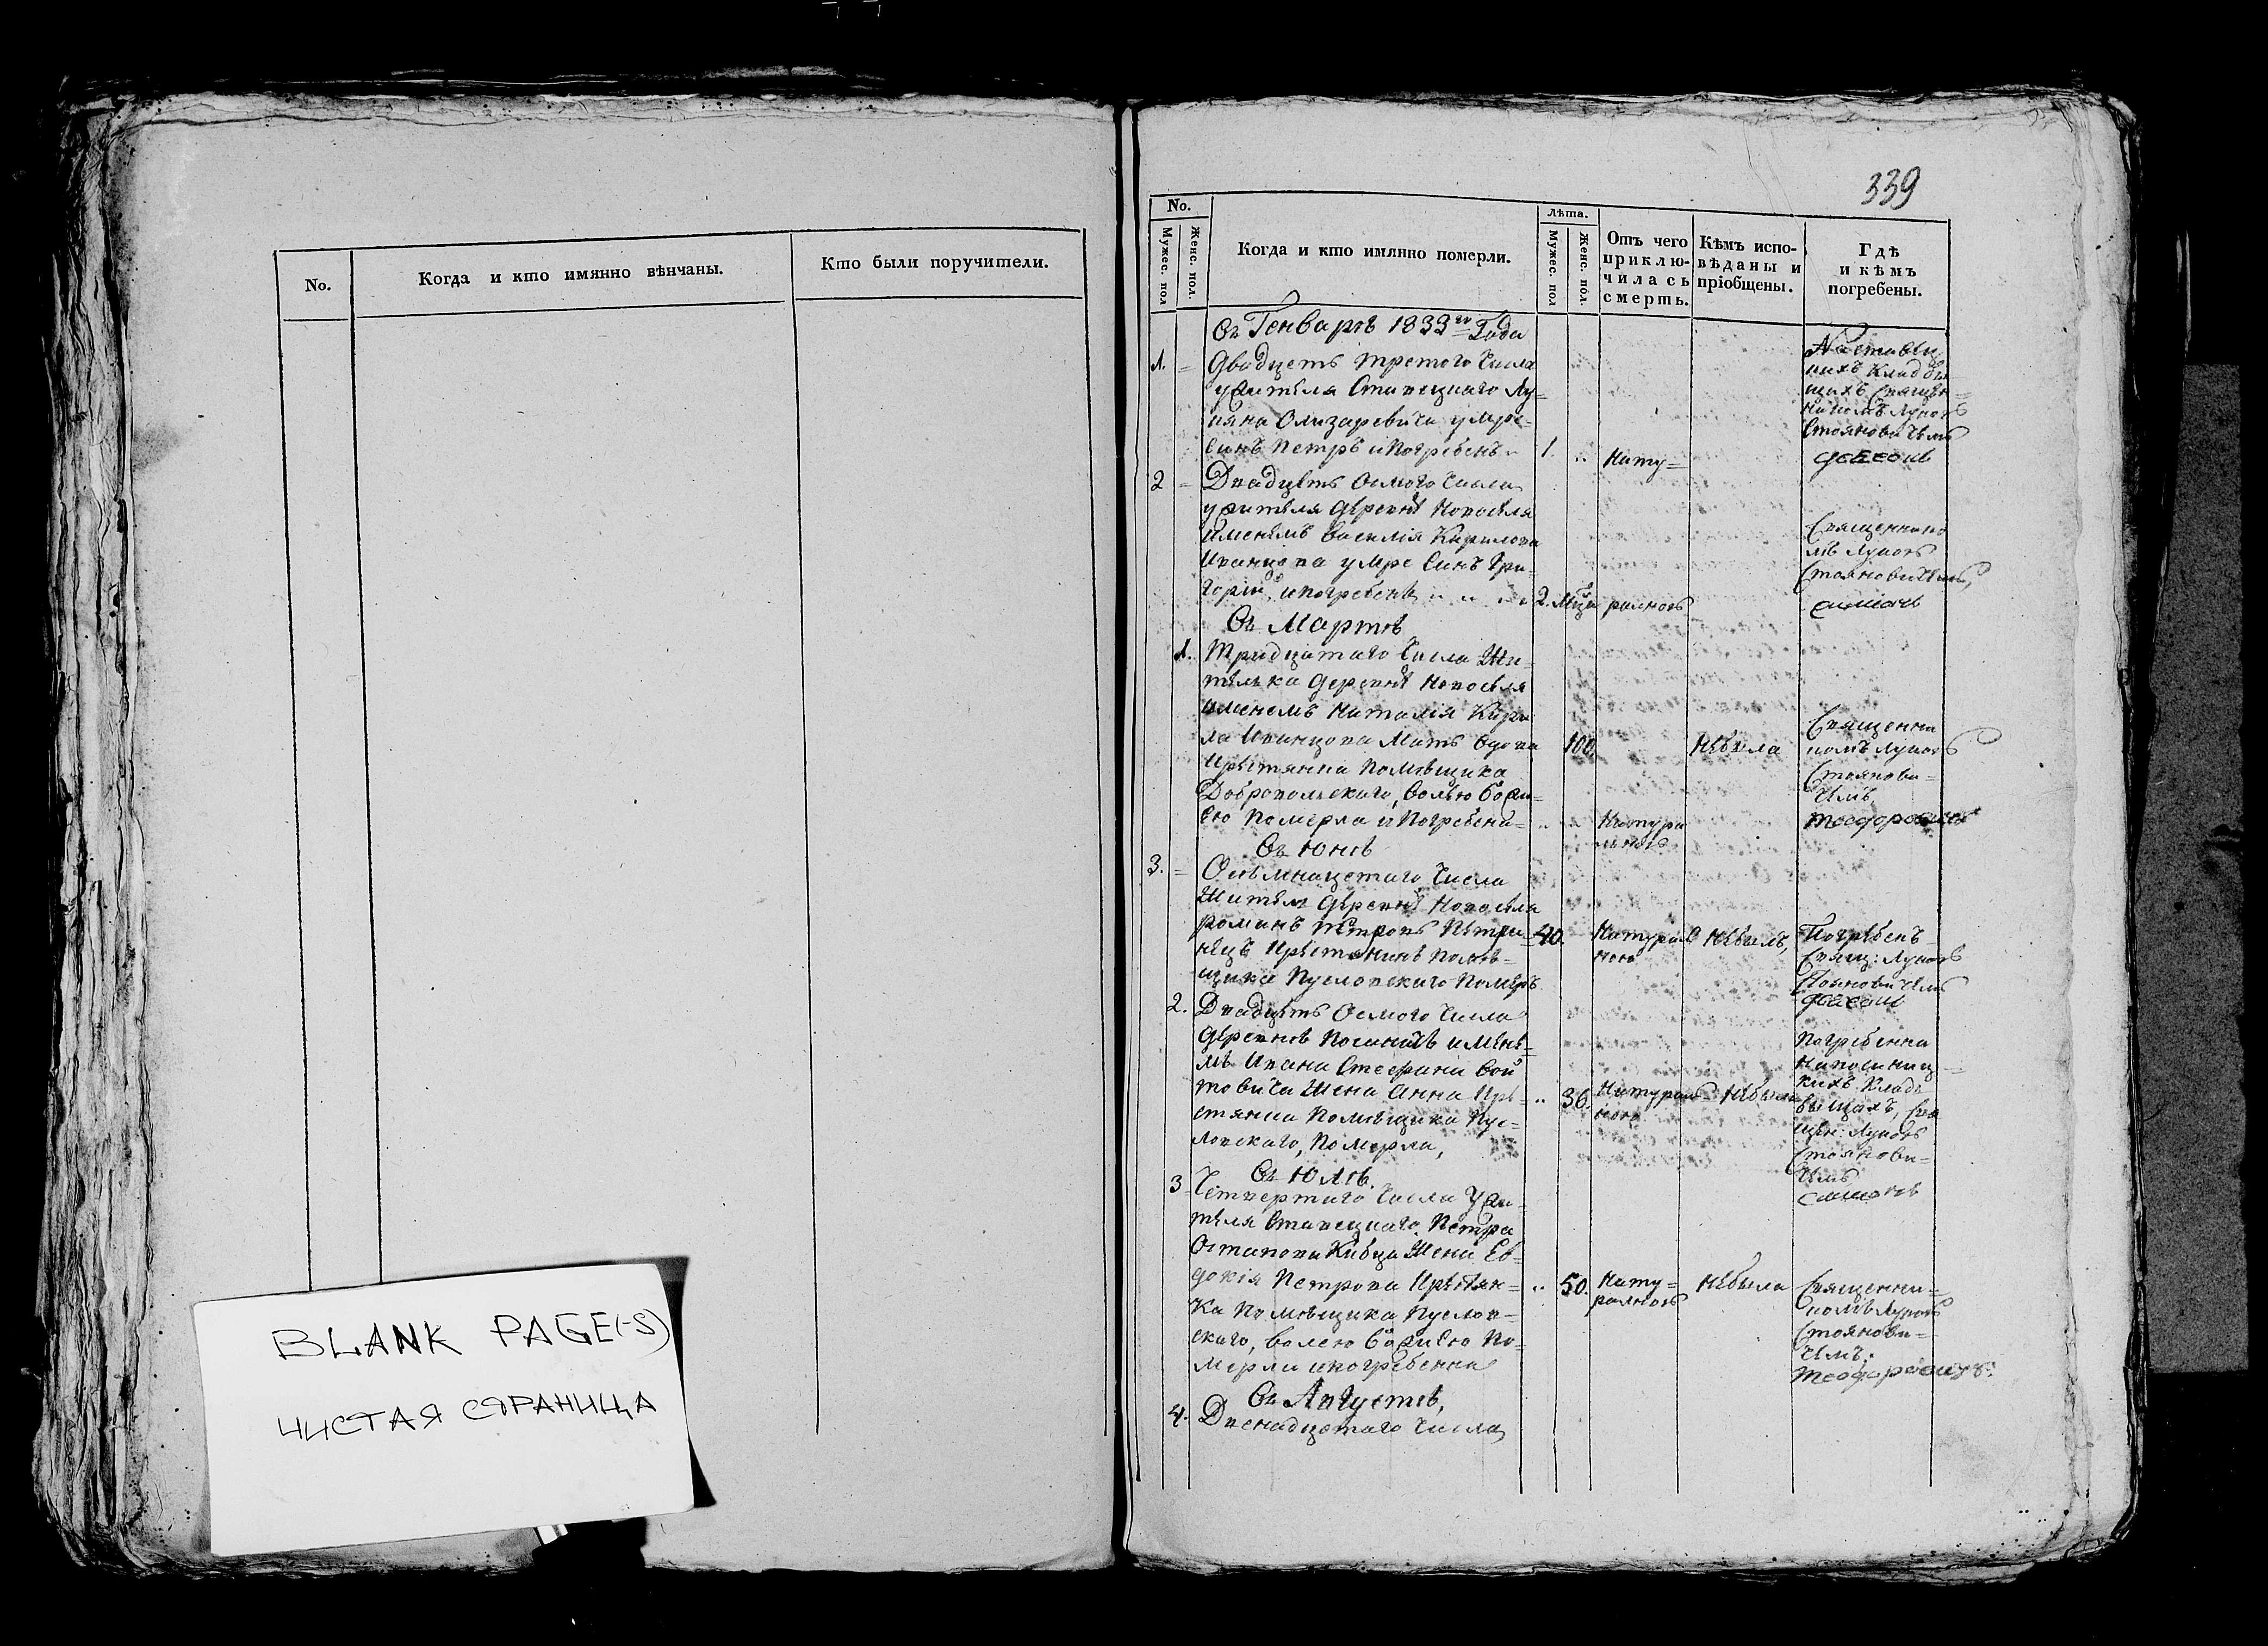 No.
Когда и кто имянно вѣнчаны.
Кто были поручители.
BLANK PAGE(-S)
ЧИСТАЯ СТРАНИЦА
339
No.
Мужес. пол
Женс. пол.
Когда и кто имянно померли.
Лѣта.
Мужес. пол
Женс. пол.
Отъ чего
приклю-
чилась
смерть.
Кѣмъ испо-
вѣданы и
пріобщены.
Гдѣ
и кѣмъ
погребены.
Генваря 1833го Года
1.
Двадцеть третого Числа
Ставецкаго Лу=
Олизаревича умре
Синъ Петръ и Погребенъ
1.
Нату=
Стояновичемъ
2
Двадцеть осмого Числа
деревни Новоселя
именемъ Василія Кирилова
Иванцова умре Синъ Гри-
горій, и погребенъ
2.
Священико
мъ Лукою
Стояновичемъ,
Въ Мартѣ
1.
Тридцатаго Числа Жи-
телька деревни Новоселя
именемъ Наталія Кири
ла Иванцова Мать вдова
Помѣщика
Добровольскаго, волью Божи=
ею Померла и Погребена=
100.
Натура
льною
Небыла
Священни
комъ Лукою
Стоянови=
чемъ,
Въ Юнѣ
3.
Числа
Житель деревни Новоселя
романъ Петровъ Петри
нецъ Крестянинъ Помѣ=
щика Пусловскаго Померъ
40.
Натурал
ною
Небылъ,
Погребенъ
Свящ: Лукою
Стояновичемъ
2.
Двадцеть Осмого Числа
имене=
мъ Ивана Стефана Вой
товича Жена Анна Кре=
стянка Помѣщика Пус=
ловскаго, Померла,
36.
Натурал
ною
Небыла
Погребенна
кихъ Клад
бищахъ, Свя
щен: Лукою
Стоянови=
чемъ
Въ Юлѣ.
3
Четвертаго Числа
Ставецкаго Петра
Остапова Кибца Жена Ев=
докія Петрова Крестян=
ка Помѣщика Пуслов=
скаго, волею Божиею По=
мерла и погребенна
50.
Нату=
ралною
Небыла
Священни=
комъ Лукою
Стоянови=
чемъ.
Въ Августѣ,
4.
Двенадцетаго Числа